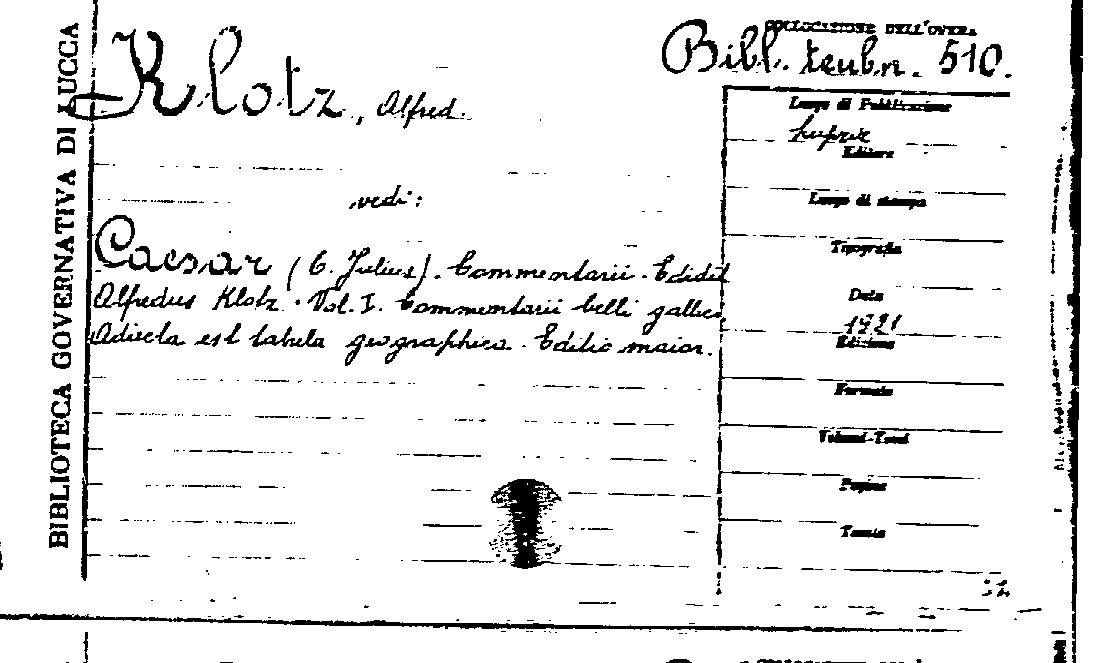 BIBLIOTECA GOVERNATIVA DI LUCCA
Klotz, Alfred.
vedi:
Caesar (C. Julius). Commentarii. Edidit
Alfredus Klotz. Vol. I. Commentarii belli gallici.
Adiecta est tabula geographica. Editio maior.
COLLOCAZIONE DELL'OPERA
Bibl. teubn. 510.
Luogo di Pubblicazione
Lipsiae
Editore
Luogo di stampa
Tipografia
Data
1921
Edizione
Formato
Volumi-Tomi
Pagine